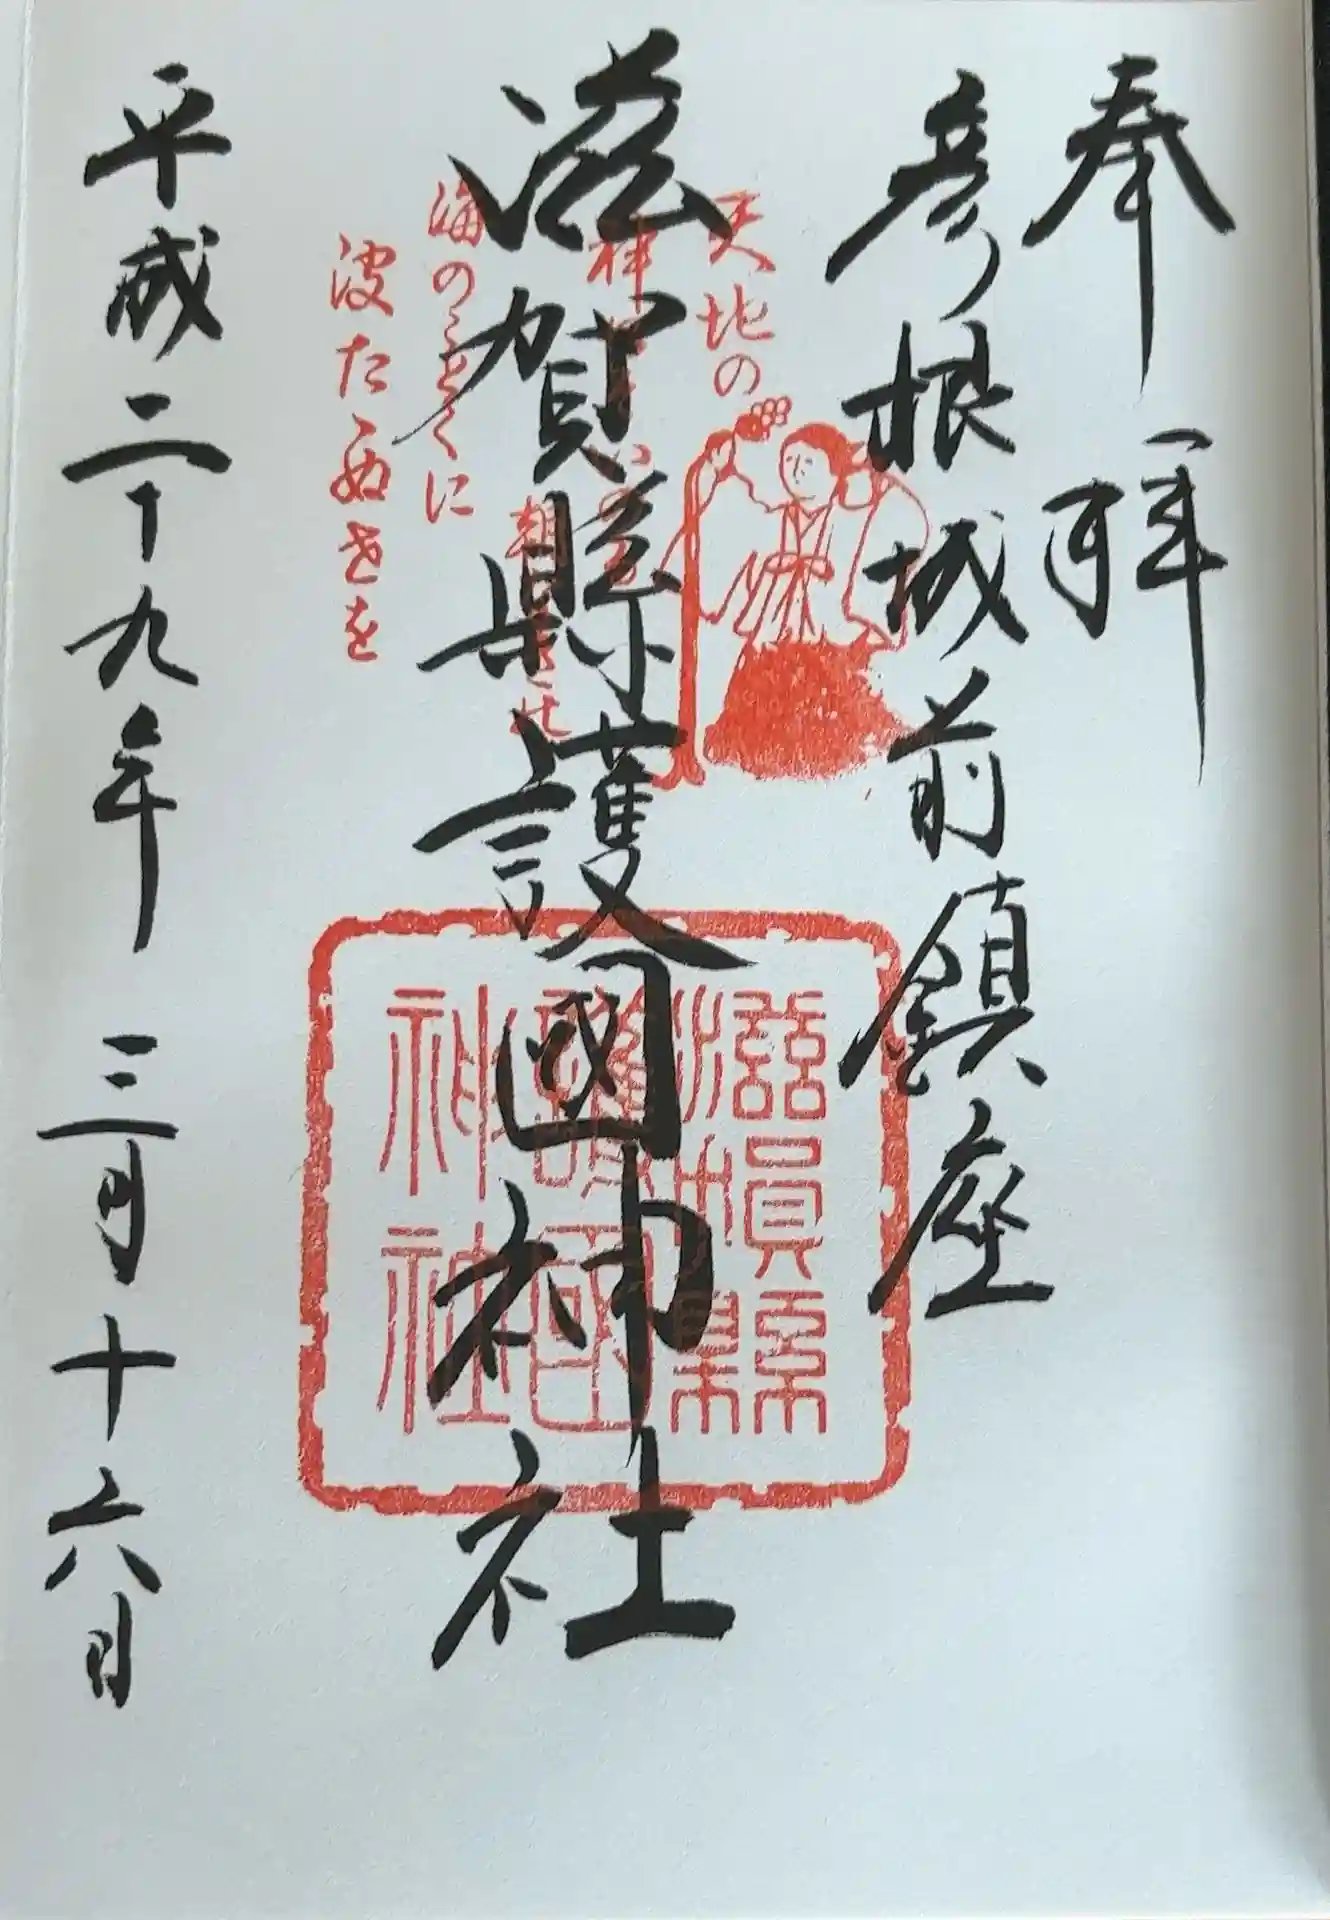 奉拝
彦根城前鎮座
滋賀縣護國神社
平成二十九年三月十六日
天地の
神
海のことくに
波たゝぬ世を
滋賀縣
護國
神社